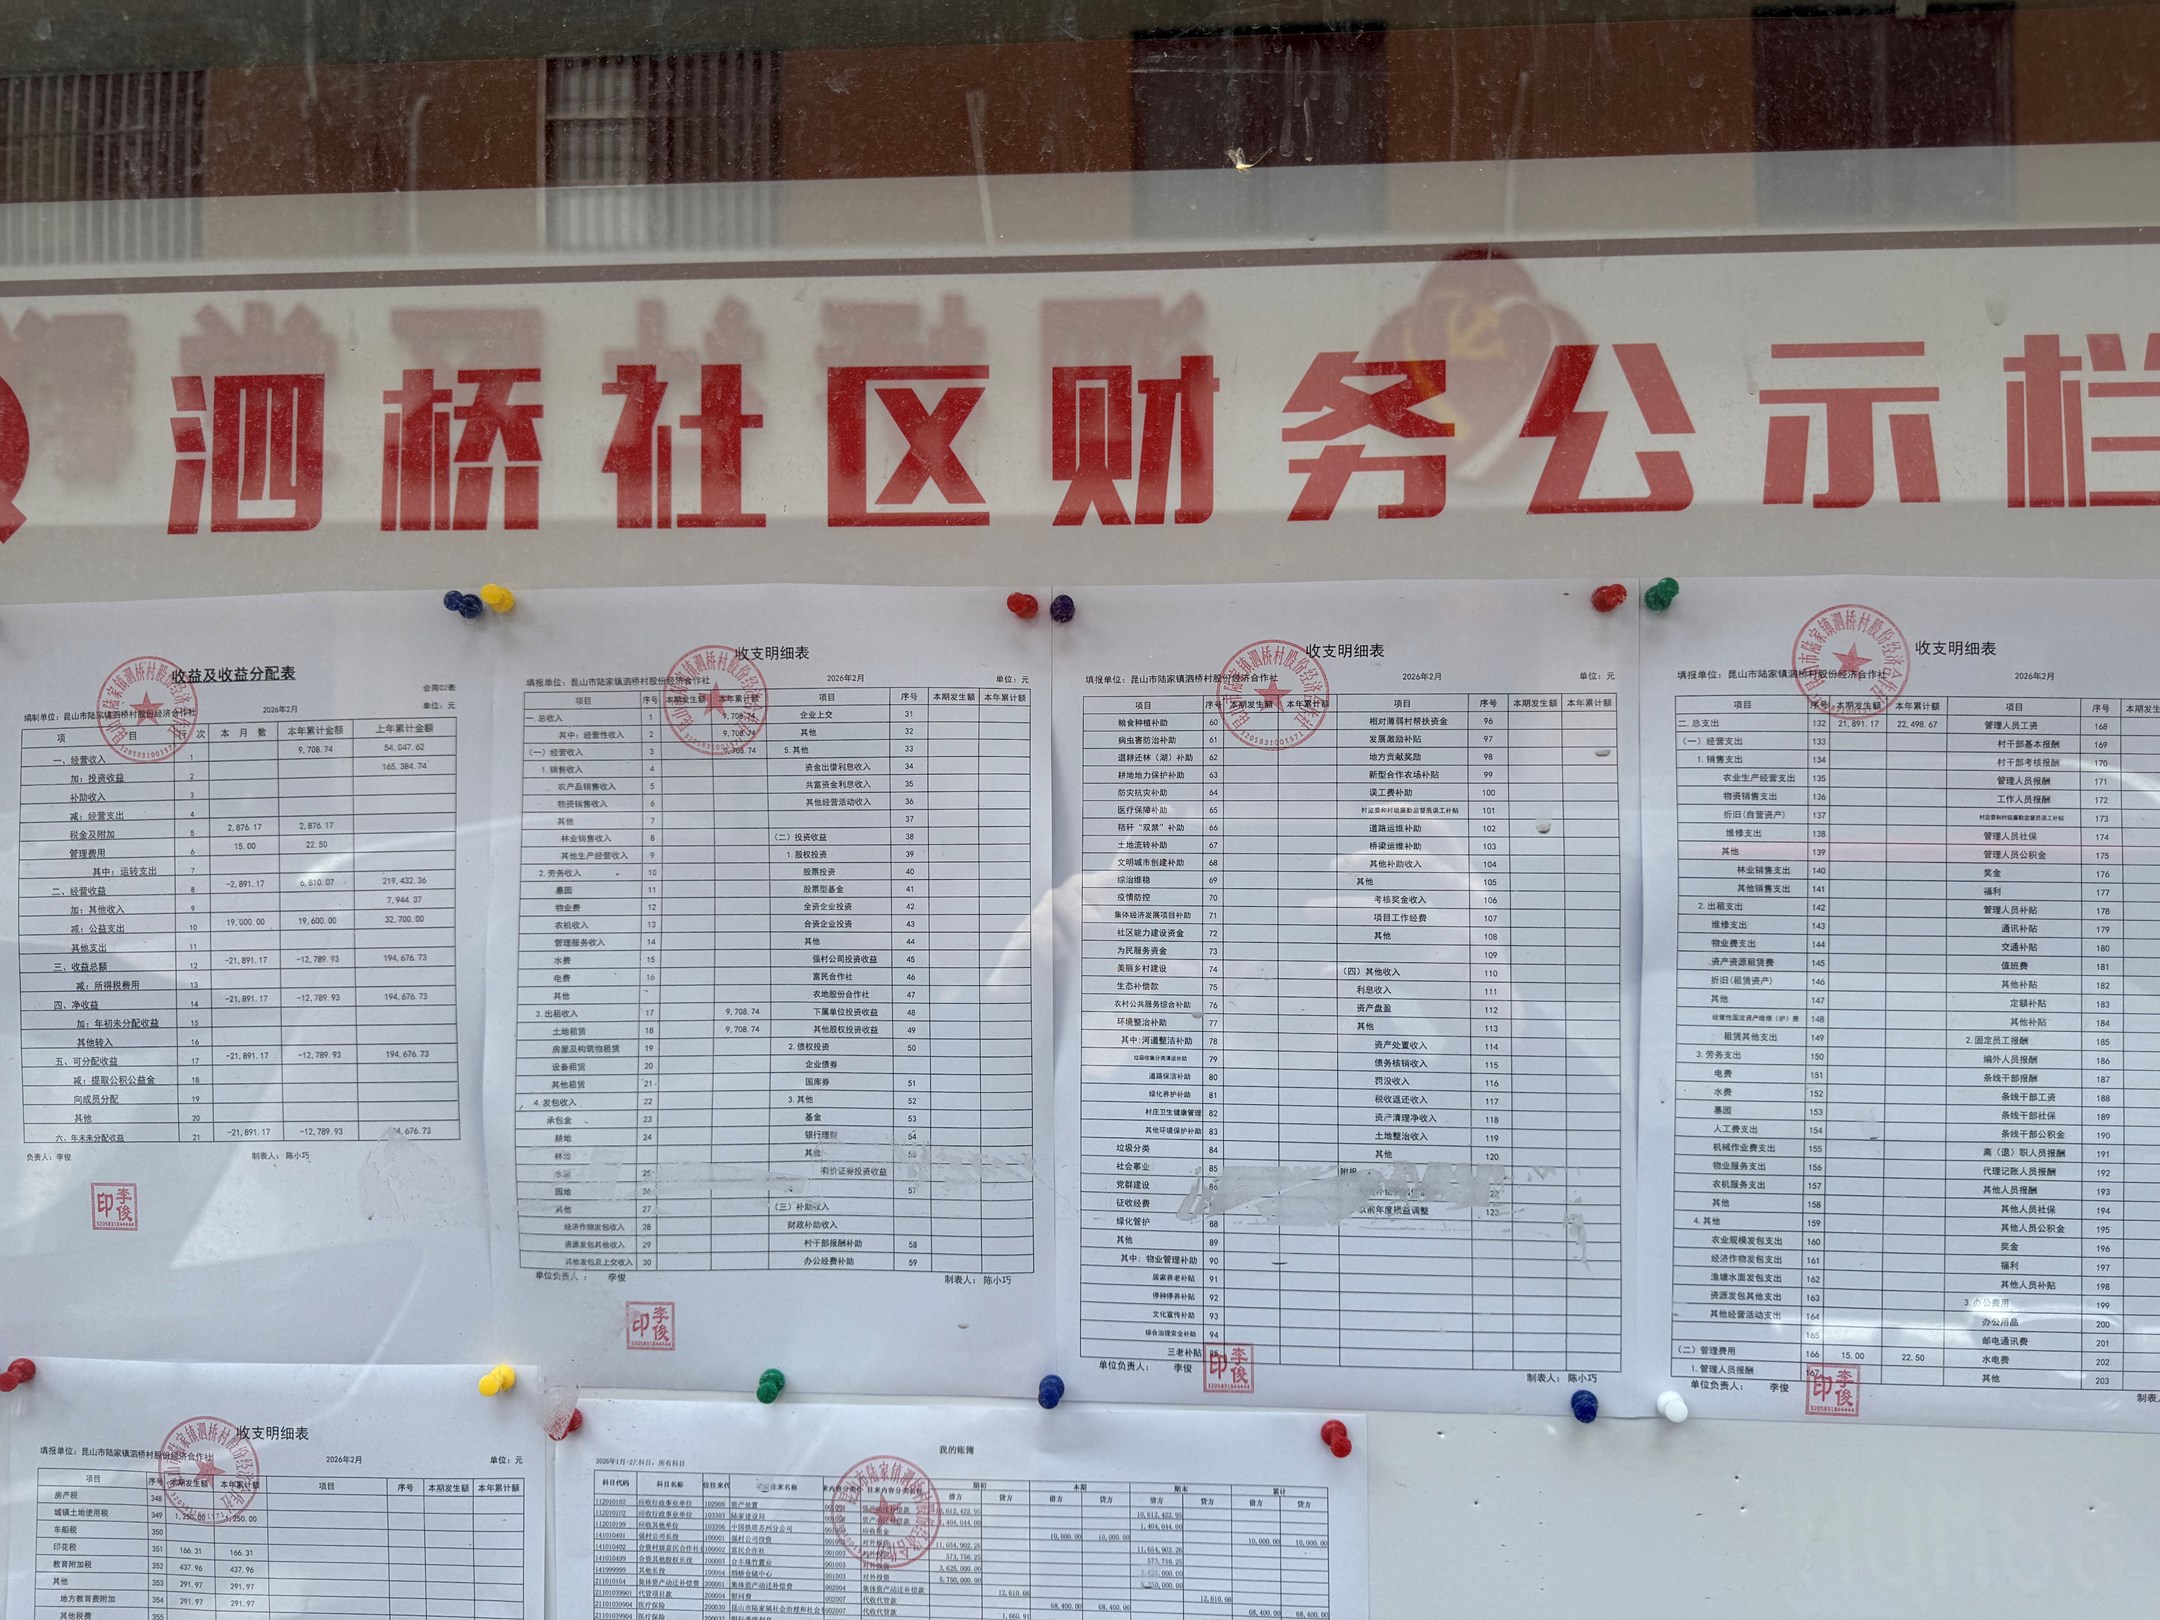 泗桥社区财务公示栏
收益及收益分配表
会商02表
编制单位：昆山市陆家镇泗桥村股份经济合作社 2026年2月 单位：元
项 目 行 次 本 月 数 本年累计金额 上年累计金额
一、经营收入 1 9,708.74 54,047.62
加：投资收益 2 165,384.74
补助收入 3
减：经营支出 4
税金及附加 5 2,876.17 2,876.17
管理费用 6 15.00 22.50
其中：运转支出 7
二、经营收益 8 -2,891.17 6,810.07 219,432.36
加：其他收入 9 7,944.37
减：公益支出 10 19,000.00 19,600.00 32,700.00
其他支出 11
三、收益总额 12 -21,891.17 -12,789.93 194,676.73
减：所得税费用 13
四、净收益 14 -21,891.17 -12,789.93 194,676.73
加：年初未分配收益 15
其他转入 16
五、可分配收益 17 -21,891.17 -12,789.93 194,676.73
减：提取公积公益金 18
向成员分配 19
其他 20
六、年末未分配收益 21 -21,891.17 -12,789.93
负责人：李俊 制表人：陈小巧
李俊印
收支明细表
填报单位：昆山市陆家镇泗桥村股份经济合作社 2026年2月 单位：元
项目 序号 本期发生额 本年累计额 项目 序号 本期发生额 本年累计额
一.总收入 1 9,708.74 企业上交 31
其中：经营性收入 2 9,708.74 其他 32
（一）经营收入 3 9,708.74 5.其他 33
1.销售收入 4 资金出借利息收入 34
农产品销售收入 5 共富资金利息收入 35
物资销售收入 6 其他经营活动收入 36
其他 7 37
林业销售收入 8 （二）投资收益 38
其他生产经营收入 9 1.股权投资 39
2.劳务收入 10 股票投资 40
墓园 11 股票型基金 41
物业费 12 全资企业投资 42
农机收入 13 合资企业投资 43
管理服务收入 14 其他 44
水费 15 强村公司投资收益 45
电费 16 富民合作社 46
其他 农地股份合作社 47
3.出租收入 17 9,708.74 下属单位投资收益 48
土地租赁 18 9,708.74 其他股权投资收益 49
房屋及构筑物租赁 19 2.债权投资 50
设备租赁 20 企业债券
其他租赁 21 国库券 51
4.发包收入 22 3.其他 52
承包金 23 基金 53
耕地 24 银行理财 54
林地 其他 55
水面 25 有价证券投资收益
园地 26 57
其他 27 （三）补助收入
经济作物发包收入 28 财政补助收入
资源发包其他收入 29 村干部报酬补助 58
其他发包及上交收入 30 办公经费补助 59
单位负责人： 李俊 制表人：陈小巧
李俊印
收支明细表
填报单位：昆山市陆家镇泗桥村股份经济合作社 2026年2月 单位：元
项目 序号 本期发生额 本年累计额 项目 序号 本期发生额 本年累计额
粮食种植补助 60 相对薄弱村帮扶资金 96
病虫害防治补助 61 发展激励补贴 97
退耕还林（湖）补助 62 地方贡献奖励 98
耕地地力保护补助 63 新型合作农场补贴 99
防灾抗灾补助 64 误工费补助 100
医疗保障补助 65 村监委和村级廉勤监督员误工补贴 101
秸秆“双禁”补助 66 道路运维补助 102
土地流转补助 67 桥梁运维补助 103
文明城市创建补助 68 其他补助收入 104
综治维稳 69 其他 105
疫情防控 70 考核奖金收入 106
集体经济发展项目补助 71 项目工作经费 107
社区能力建设资金 72 其他 108
为民服务资金 73 109
美丽乡村建设 74 （四）其他收入 110
生态补偿款 75 利息收入 111
农村公共服务综合补助 76 资产盘盈 112
环境整治补助 77 其他 113
其中：河道整洁补助 78 资产处置收入 114
垃圾收集分类清运补助 79 债务核销收入 115
道路保洁补助 80 罚没收入 116
绿化养护补助 81 税收返还收入 117
村庄卫生健康管理 82 资产清理净收入 118
其他环境保护补助 83 土地整治收入 119
垃圾分类 84 其他 120
社会事业 85 附报
党群建设 86
征收经费 以前年度损益调整 123
绿化管护 88
其他 89
其中：物业管理补助 90
居家养老补贴 91
停种停养补贴 92
文化宣传补助 93
综合治理安全补助 94
三老补贴 95
单位负责人： 李俊 制表人：陈小巧
李俊印
收支明细表
填报单位：昆山市陆家镇泗桥村股份经济合作社 2026年2月
项目 序号 本期发生额 本年累计额 项目 序号 本期发生
二.总支出 132 21,891.17 22,498.67 管理人员工资 168
（一）经营支出 133 村干部基本报酬 169
1.销售支出 134 村干部考核报酬 170
农业生产经营支出 135 管理人员报酬 171
物资销售支出 136 工作人员报酬 172
折旧(自营资产) 137 村监委和村级廉勤监督员误工补贴 173
维修支出 138 管理人员社保 174
其他 139 管理人员公积金 175
林业销售支出 140 奖金 176
其他销售支出 141 福利 177
2.出租支出 142 管理人员补贴 178
维修支出 143 通讯补贴 179
物业费支出 144 交通补贴 180
资产资源租赁费 145 值班费 181
折旧(租赁资产) 146 其他补贴 182
其他 147 定额补贴 183
经营性固定资产维修（护）费 148 其他补贴 184
租赁其他支出 149 2.固定员工报酬 185
3.劳务支出 150 编外人员报酬 186
电费 151 条线干部报酬 187
水费 152 条线干部工资 188
墓园 153 条线干部社保 189
人工费支出 154 条线干部公积金 190
机械作业费支出 155 离（退）职人员报酬 191
物业服务支出 156 代理记账人员报酬 192
农机服务支出 157 其他人员报酬 193
其他 158 其他人员社保 194
4.其他 159 其他人员公积金 195
农业规模发包支出 160 奖金 196
经济作物发包支出 161 福利 197
渔塘水面发包支出 162 其他人员补贴 198
资源发包其他支出 163 3.办公费用 199
其他经营活动支出 164 办公用品 200
165 邮电通讯费 201
（二）管理费用 166 15.00 22.50 水电费 202
1.管理人员报酬 167 其他 203
单位负责人： 李俊 制表
李俊印
收支明细表
填报单位：昆山市陆家镇泗桥村股份经济合作社 2026年2月 单位：元
项目 序号 本期发生额 本年累计额 项目 序号 本期发生额 本年累计额
房产税 348
城镇土地使用税 349 1,250.00 1,250.00
车船税 350
印花税 351 166.31 166.31
教育附加税 352 437.96 437.96
其他 353 291.97 291.97
地方教育费附加 354 291.97 291.97
其他税费 355
我的账簿
2026年1月-2月 科目：所有科目
科目代码 科目名称 往来名称 期初 本期 期末 累计
借方 贷方 借方 贷方 借方 贷方 借方 贷方
112010102 应收行政事业单位 102900 资产处置 10,812,422.95
112010102 应收行政事业单位 103303 陆家建设局 1,404,044.00 1,404,044.00
112010199 应收其他单位 103306 中国铁塔苏州分公司 10,000.00 10,000.00 10,000.00 10,000.00
141010401 强村公司长投 100001 强村公司投资 001003 对外投资 11,654,902.26 11,654,902.26
141010402 100002 富民合作社 573,756.25 573,756.25
141010499 合资其他股权长投 100003 001003 对外投资 3,625,000.00
141999999 其他长投 100004 泗桥仓储中心 001003 对外投资 5,750,000.00
211010104 200001 002004 12,610.66 12,610.66
21101039901 代管项目款 200004 慰问费 002007 代收代管款 68,400.00 68,400.00 68,400.00 68,400.00
21101039904 医疗保险 200030 002007 代收代管款 1,660.91